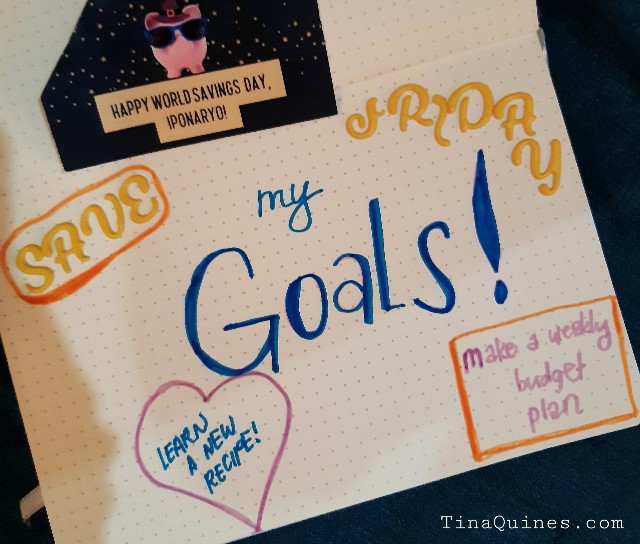 HAPPY WORLD SAVINGS DAY,
IPONARYO!
FRIDAY
SAVE
my
Goals!
make a weekly
budget
plan
LEARN
A NEW
RECIPE!
TinaQuines.com